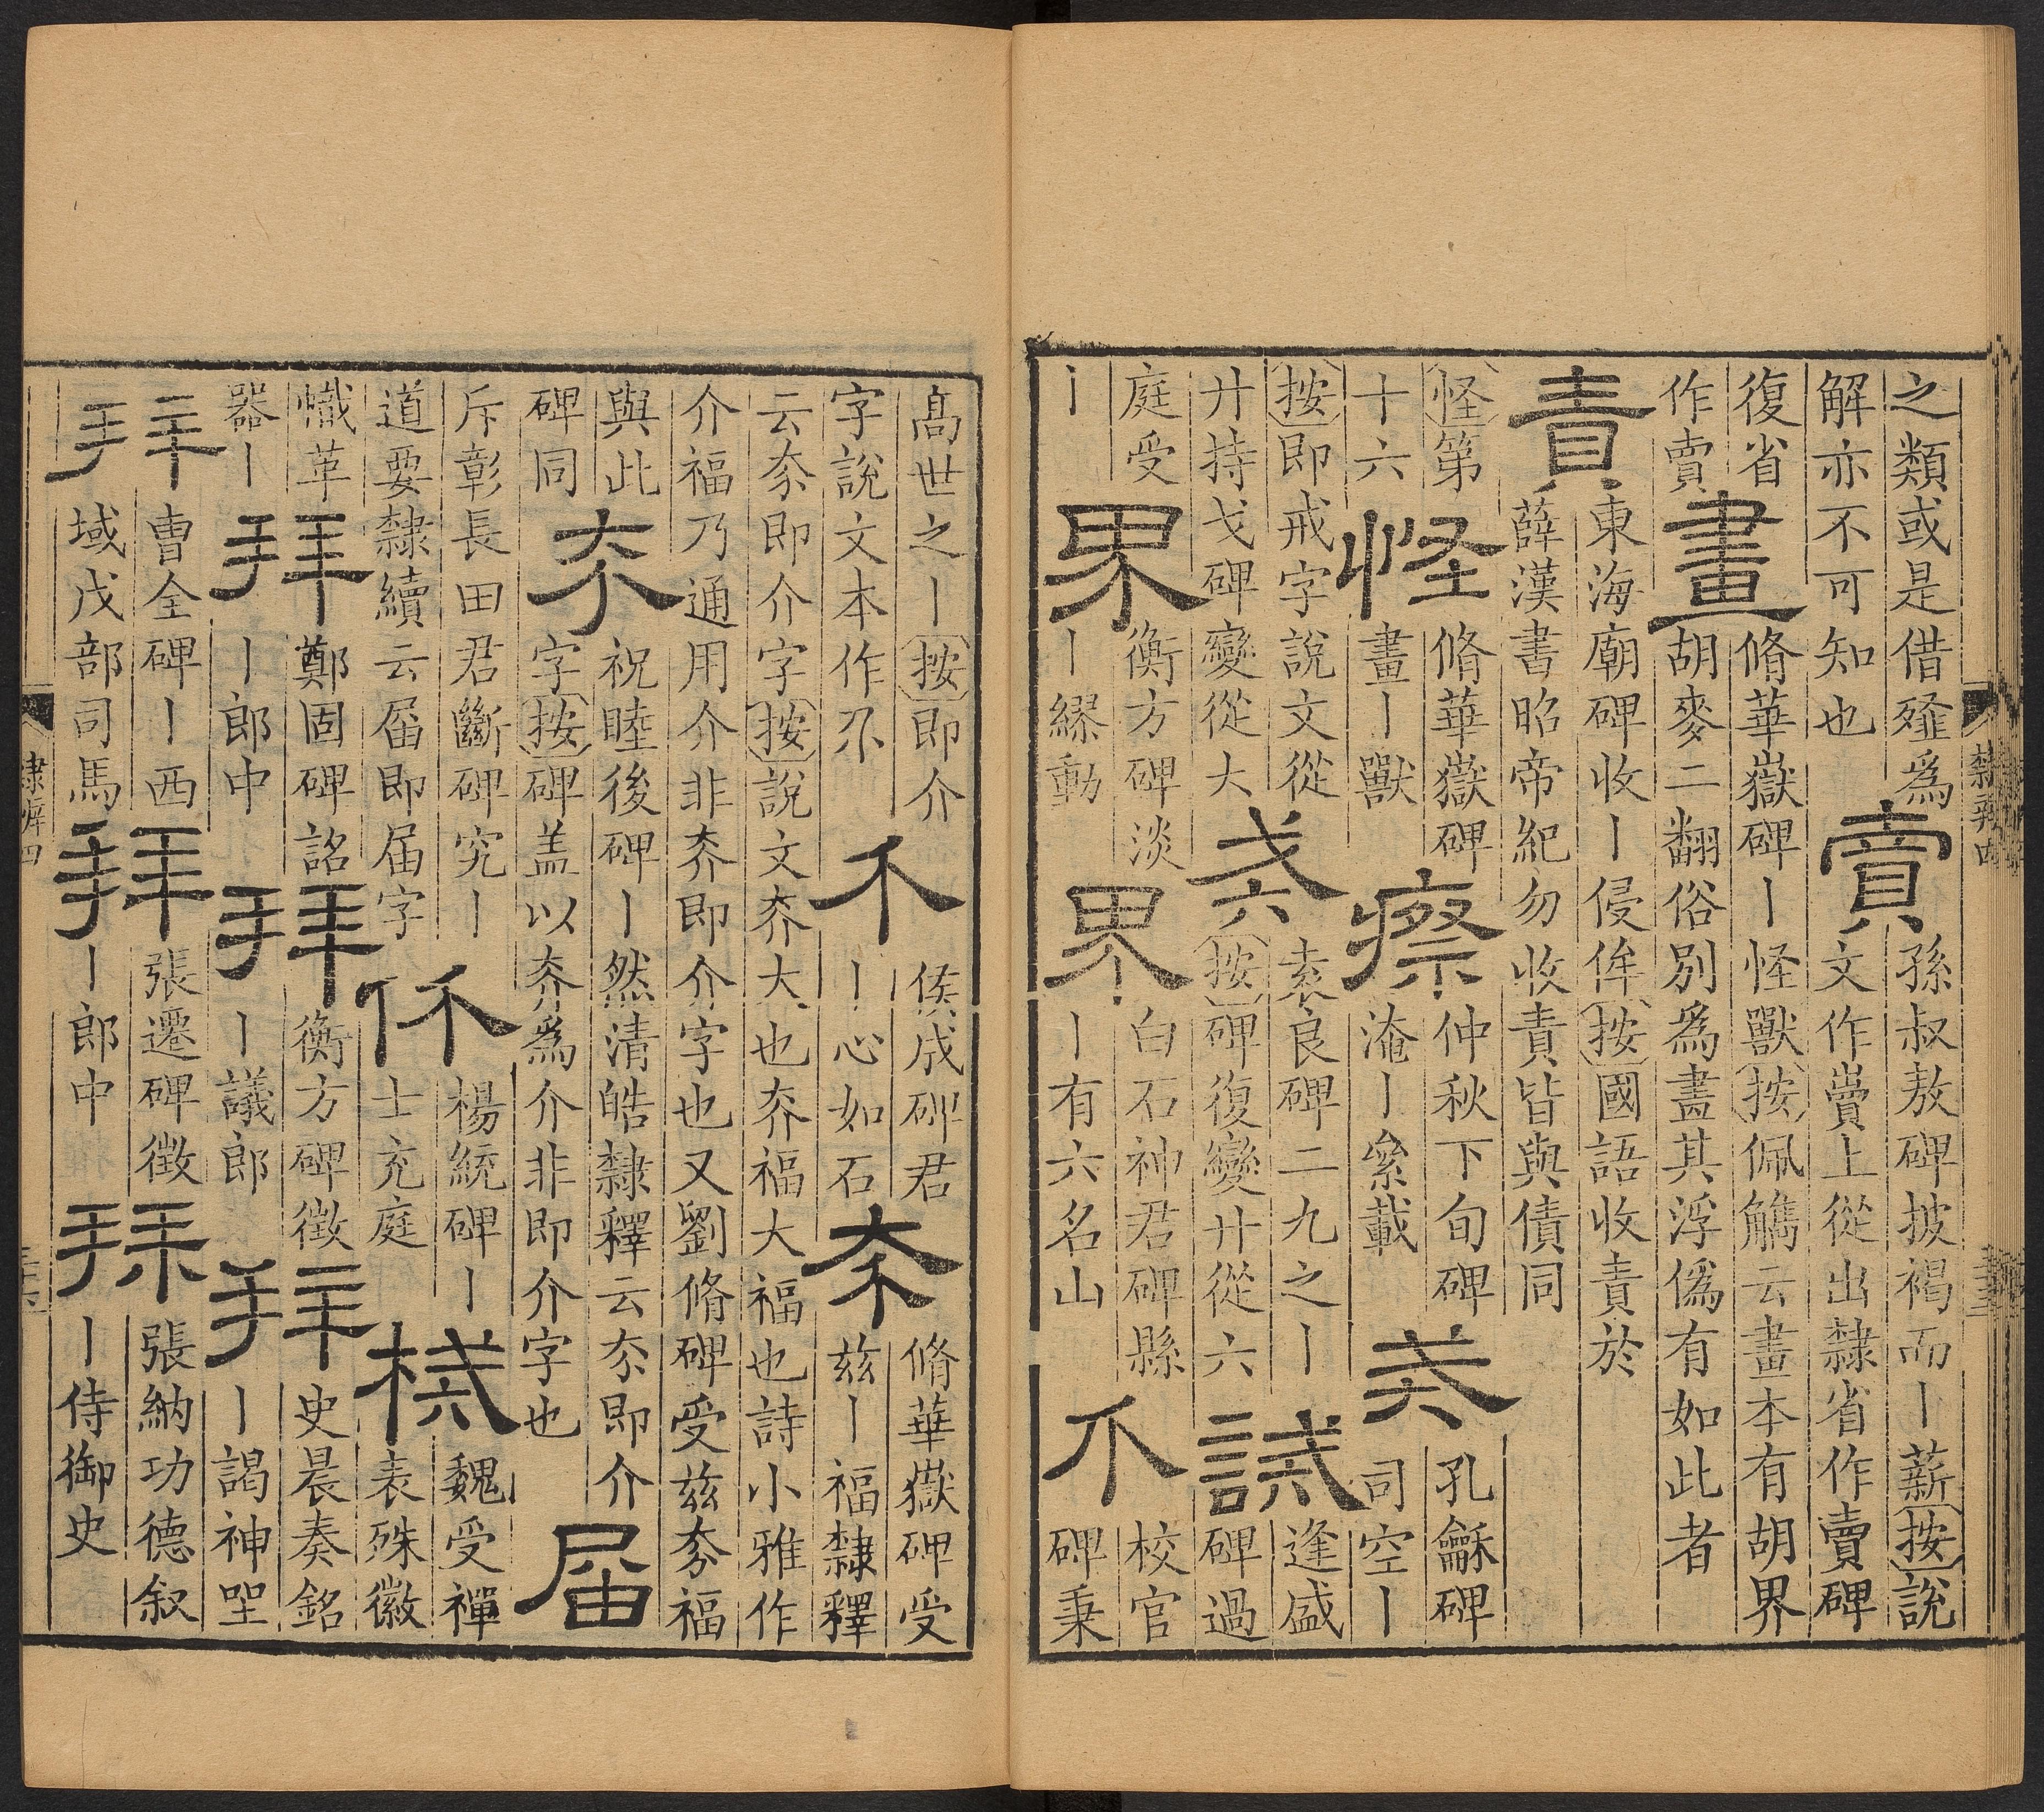 之類或是借為
解亦不可知也
賣
孫叔敖碑披褐而丨薪按說
文作𧶠上從出隸省作賣碑
復省
作賣
畫
脩華嶽碑丨怪獸按佩觿云畫本有胡界
胡麥二翻俗別為畫其浮偽有如此者
責
東海廟碑收丨侵侔按國語收責於
薛漢書昭帝紀勿收責皆與債同
怪第
十六
怪
脩華嶽碑
畫丨獸
瘵
仲秋下旬碑
淹丨枲載
戒
孔龢碑
司空丨
按即戒字說文從
廾持戈碑變從大
戒
袁良碑二九之丨
按碑復變廾從六
誡
逢盛
碑過
庭受
丨
界
衡方碑淡
丨繆動
界
白石神君碑縣
丨有六名山
介
校官
碑秉
隸辨四
高世之丨按即介
字說文本作尒
介
侯成碑君
丨心如石
夰
脩華嶽碑受
兹丨福隸釋
云夰即介字按說文夰大也夰福大福也詩小雅作
介福乃通用介非夰即介字也又劉脩碑受兹夰福
與此
碑同
夰
祝睦後碑丨然清皓隸釋云夰即介
字按碑盖以夰為介非即介字也
届
斥彰長田君斷碑究丨
道要隸續云届即届字
价
楊統碑丨
士充庭
械
魏受禪
表殊徽
幟革
器丨
拜
鄭固碑詔
丨郎中
拜
衡方碑徵
丨議郎
拜
史晨奏銘
丨謁神聖
拜
曹全碑丨西
域戊部司馬
拜
張遷碑徵
丨郎中
拜
張納功德叙
丨侍御史
隸辨四